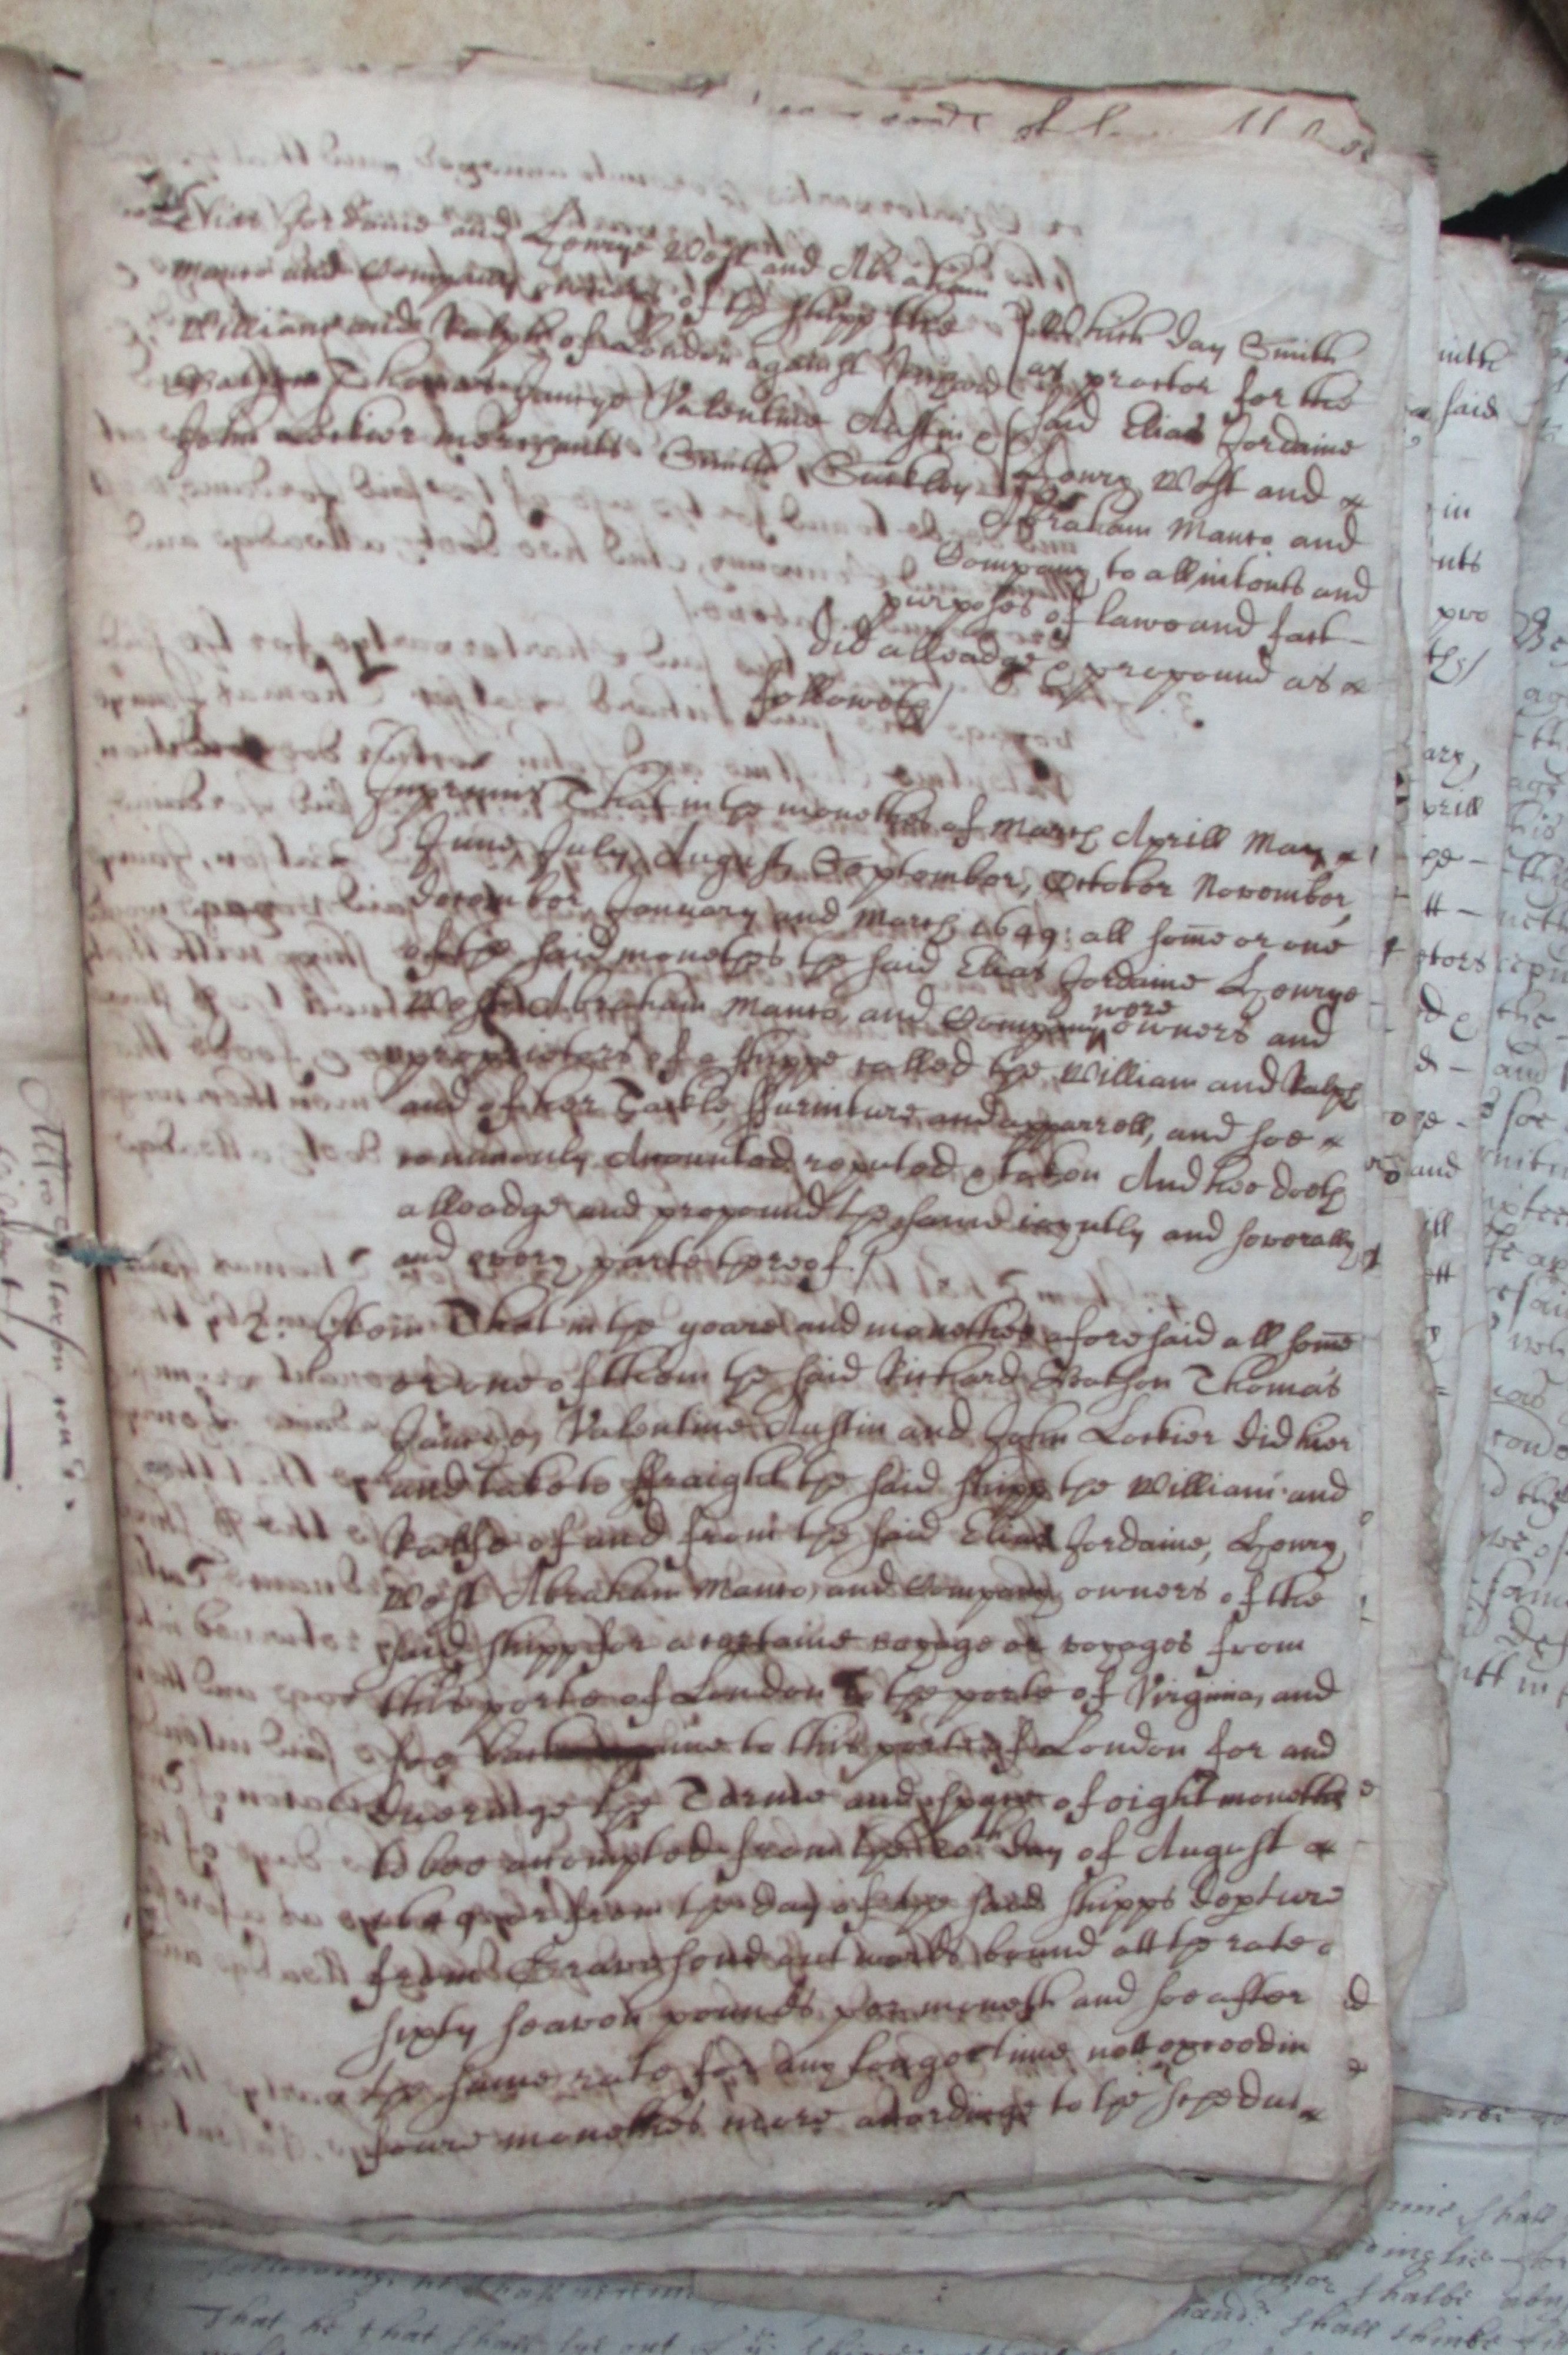 Elias Jordaine and Henrye West and Abraham
Mance and Company owners of the shipp the
William and Ralph of London against Richard
Watson Thomas Jauncye Valentine Austin &
John Lockier merchants. Smith Suckley
Which day Smith
as proctor for the
said Elias Jordaine
Henry West and
Abraham Mance and
Company to all intents and
purposes of lawe and fact
did alleadge & propound as
followeth/
Inprimis That in the monethes of March Aprill May
June, July, August, September, October November,
December, January and March 1649: all some or one
of the said monethes the said Elias Jordaine Henrye
West Abraham Mance, and Company were owners and
proprietors of a shippe called the William and Ralph
and of her Tackle, ffurniture and apparrell, and soe
commonly accounted reputed & taken And hee doeth
alleadge and propound the same ioyntly and severally
and every parte thereof./
2. Item That in the yeare and monethes aforesaid all some
or one of them the said Richard Watson Thomas
Jauncey, Valentine Austin and John Lockier did hier
and take to ffraight the said shipp the William and
Ralfe of and from the said Elias Jordaine, Henry
West Abraham Mance, and Company owners of the
said shipp for a certaine voyage or voyages from
this porte of London to the porte of Virginia, and
soe back to this porte of London for and
dueringe the Terme and space of eight monethes
to bee accompted from the day of August
or from the day of the said shipps depture
from Gravesend outwards bound att the rate
sixty seaven pounds per moneth and soe after
the same rate for any longer time not exceedin
foure monethes more accordinge to the schedul